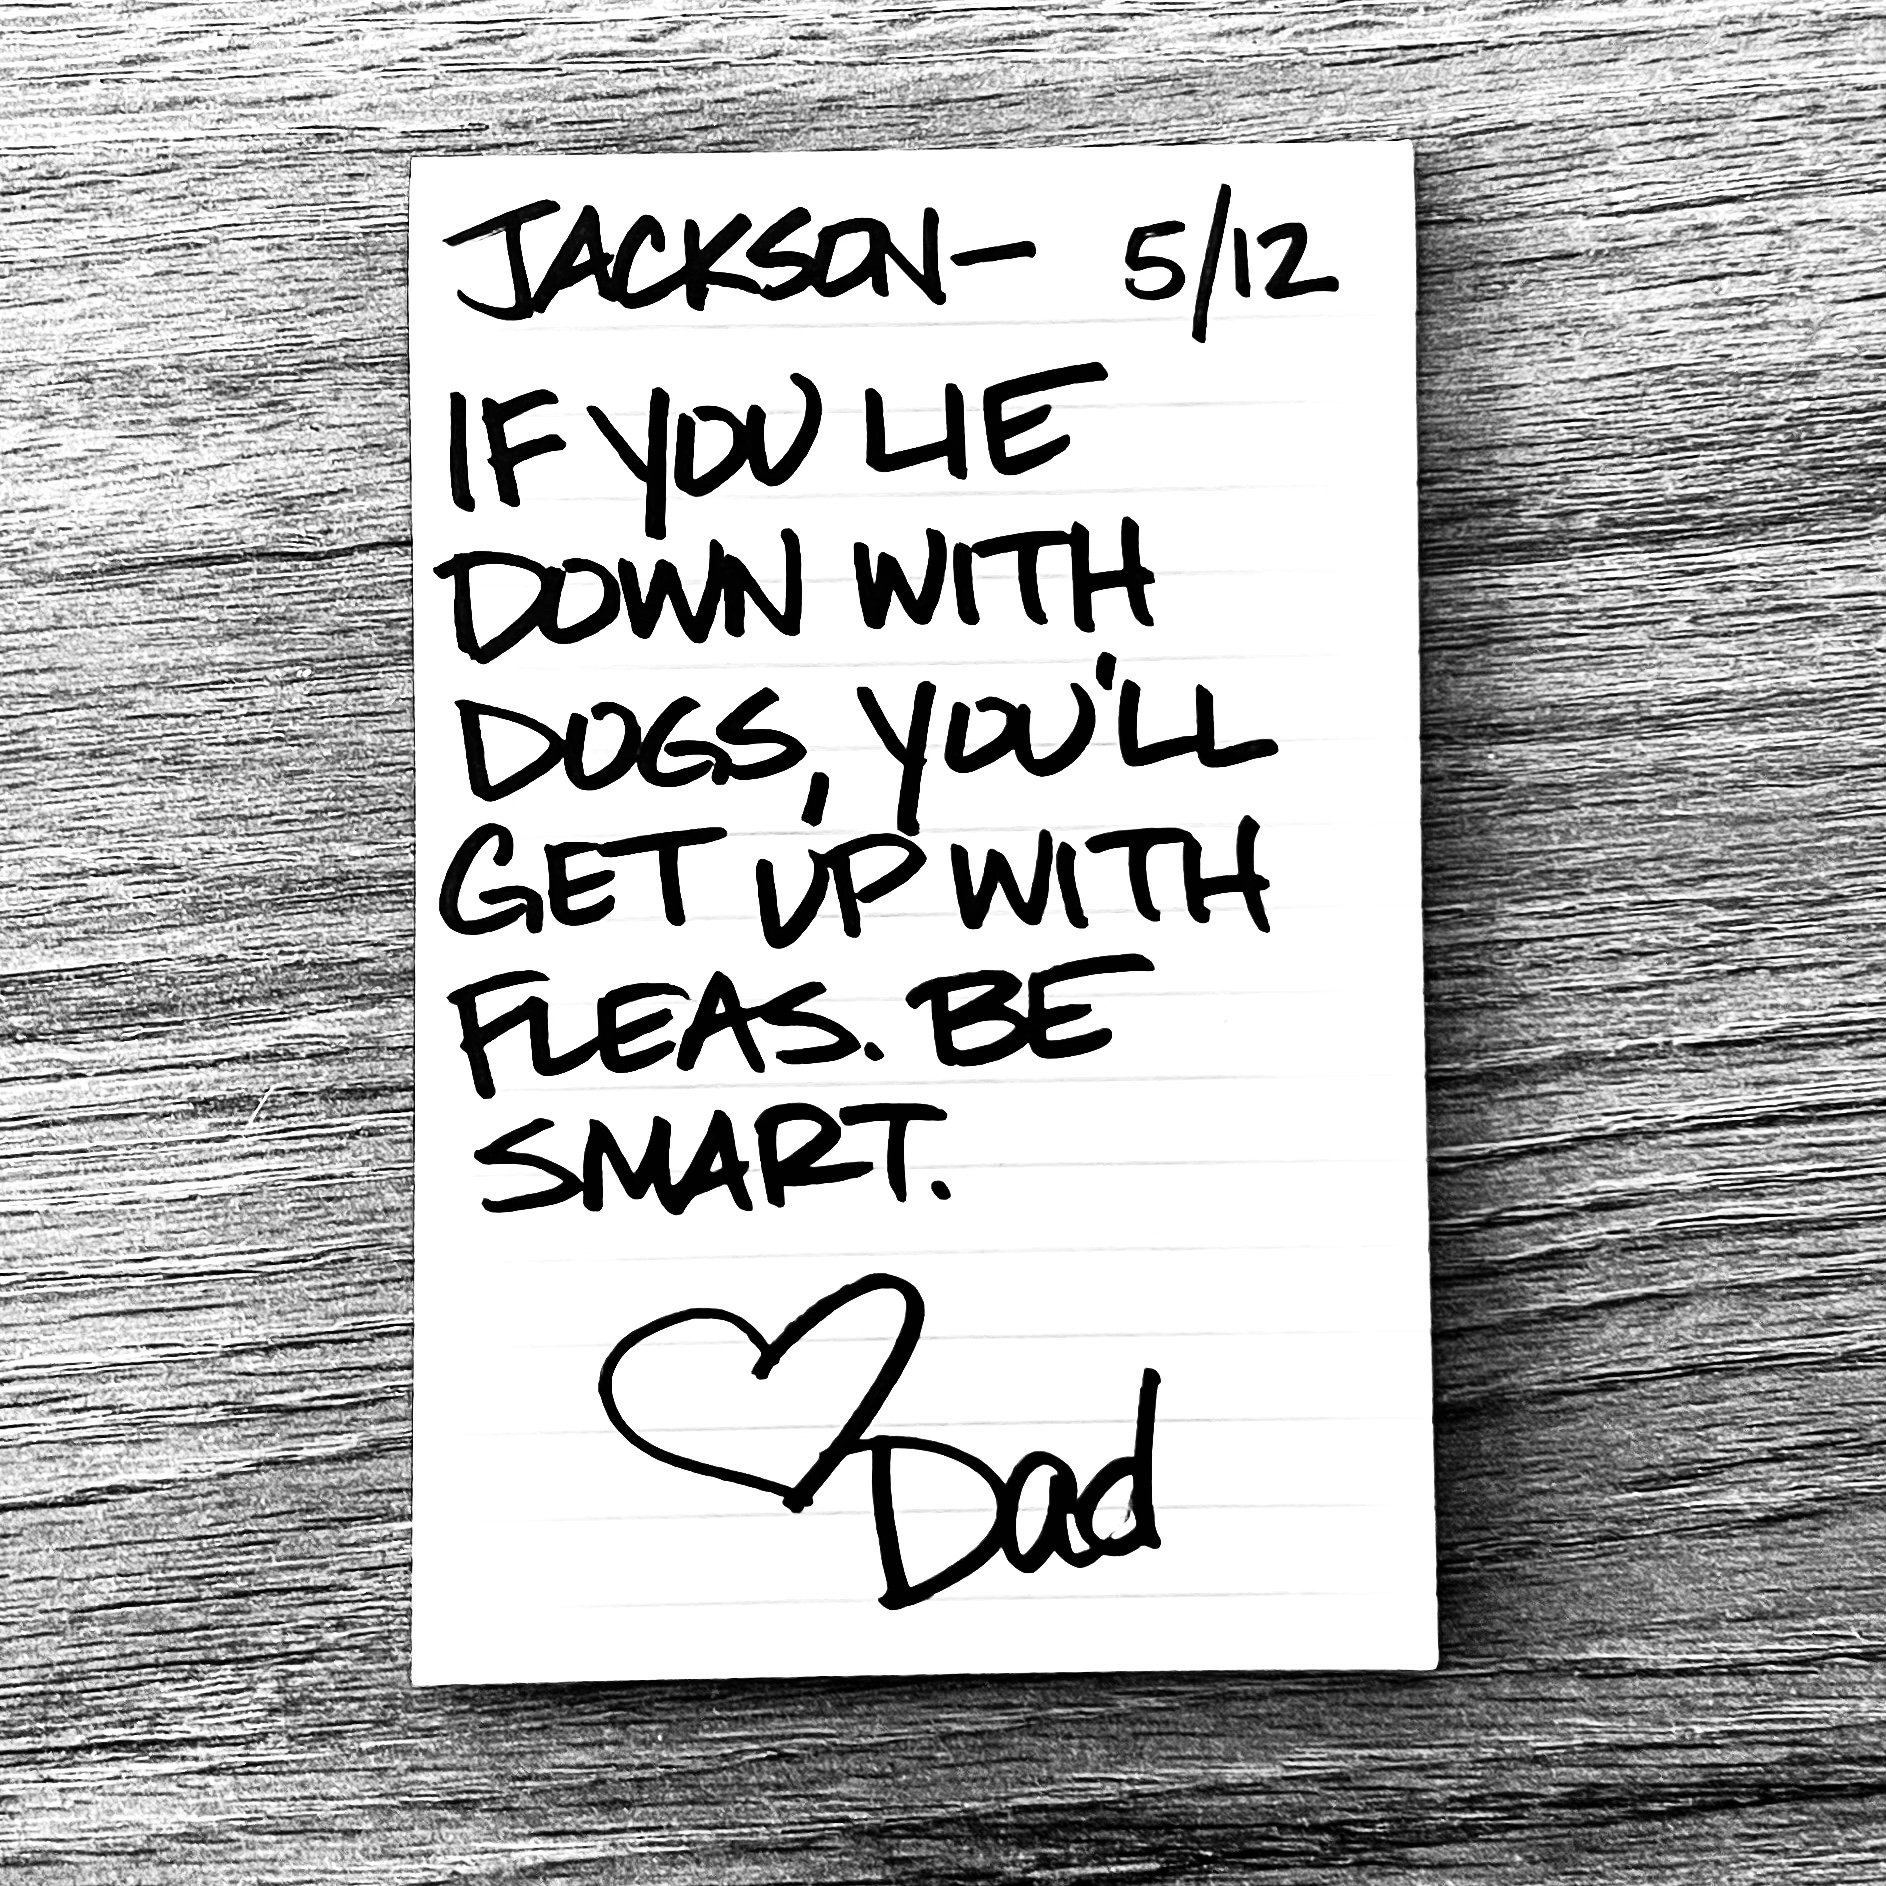 JACKSON— 5/12
IF YOU LIE
DOWN WITH
DOGS, YOU'LL
GET UP WITH
FLEAS. BE
SMART.
♡Dad